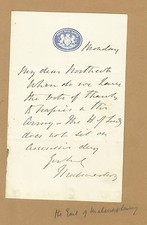 Monday
My dear Northcote
When do we have
the vote of thanks
to
Army - The H of Lords
does not sit on
Ascension day
Malmesbury
The Earl of Malmesbury